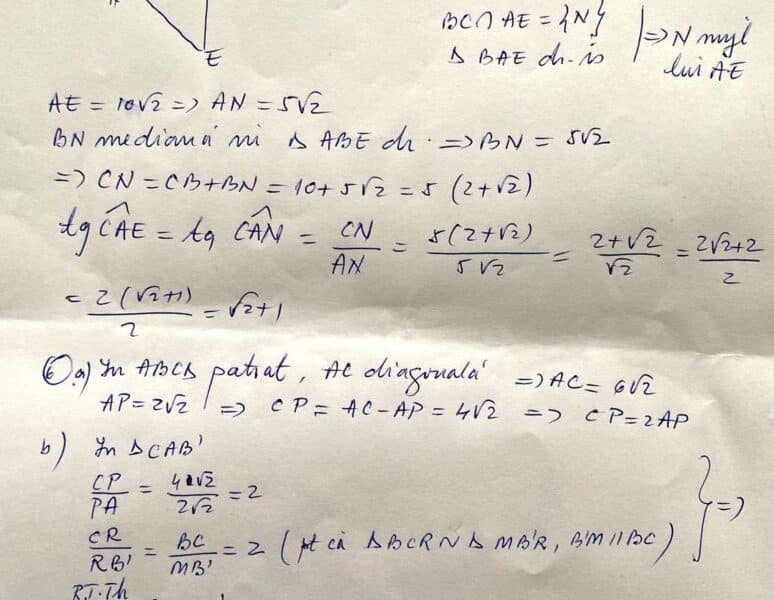 E
BC∩AE = {N}
Δ BAE dr. is
=> N mijl
lui AE
AE = 10√2 => AN = 5√2
BN mediană în Δ ABE dr. => BN = 5√2
=> CN = CB+BN = 10+5√2 = 5 (2+√2)
tg CAE = tg CAN = CN/AN = 5(2+√2)/5√2 = 2+√2/√2 = 2√2+2/2
= 2(√2+1)/2 = √2+1
6 a) În ABCD patrat, AC diagonală => AC = 6√2
AP=2√2 => CP = AC-AP = 4√2 => CP=2AP
b) În ΔCAB'
CP/PA = 4√2/2√2 = 2
CR/RB' = BC/MB' = 2 (pt că ΔBCR ~ Δ MB'R, B'M || BC) } =>
R.T.Th